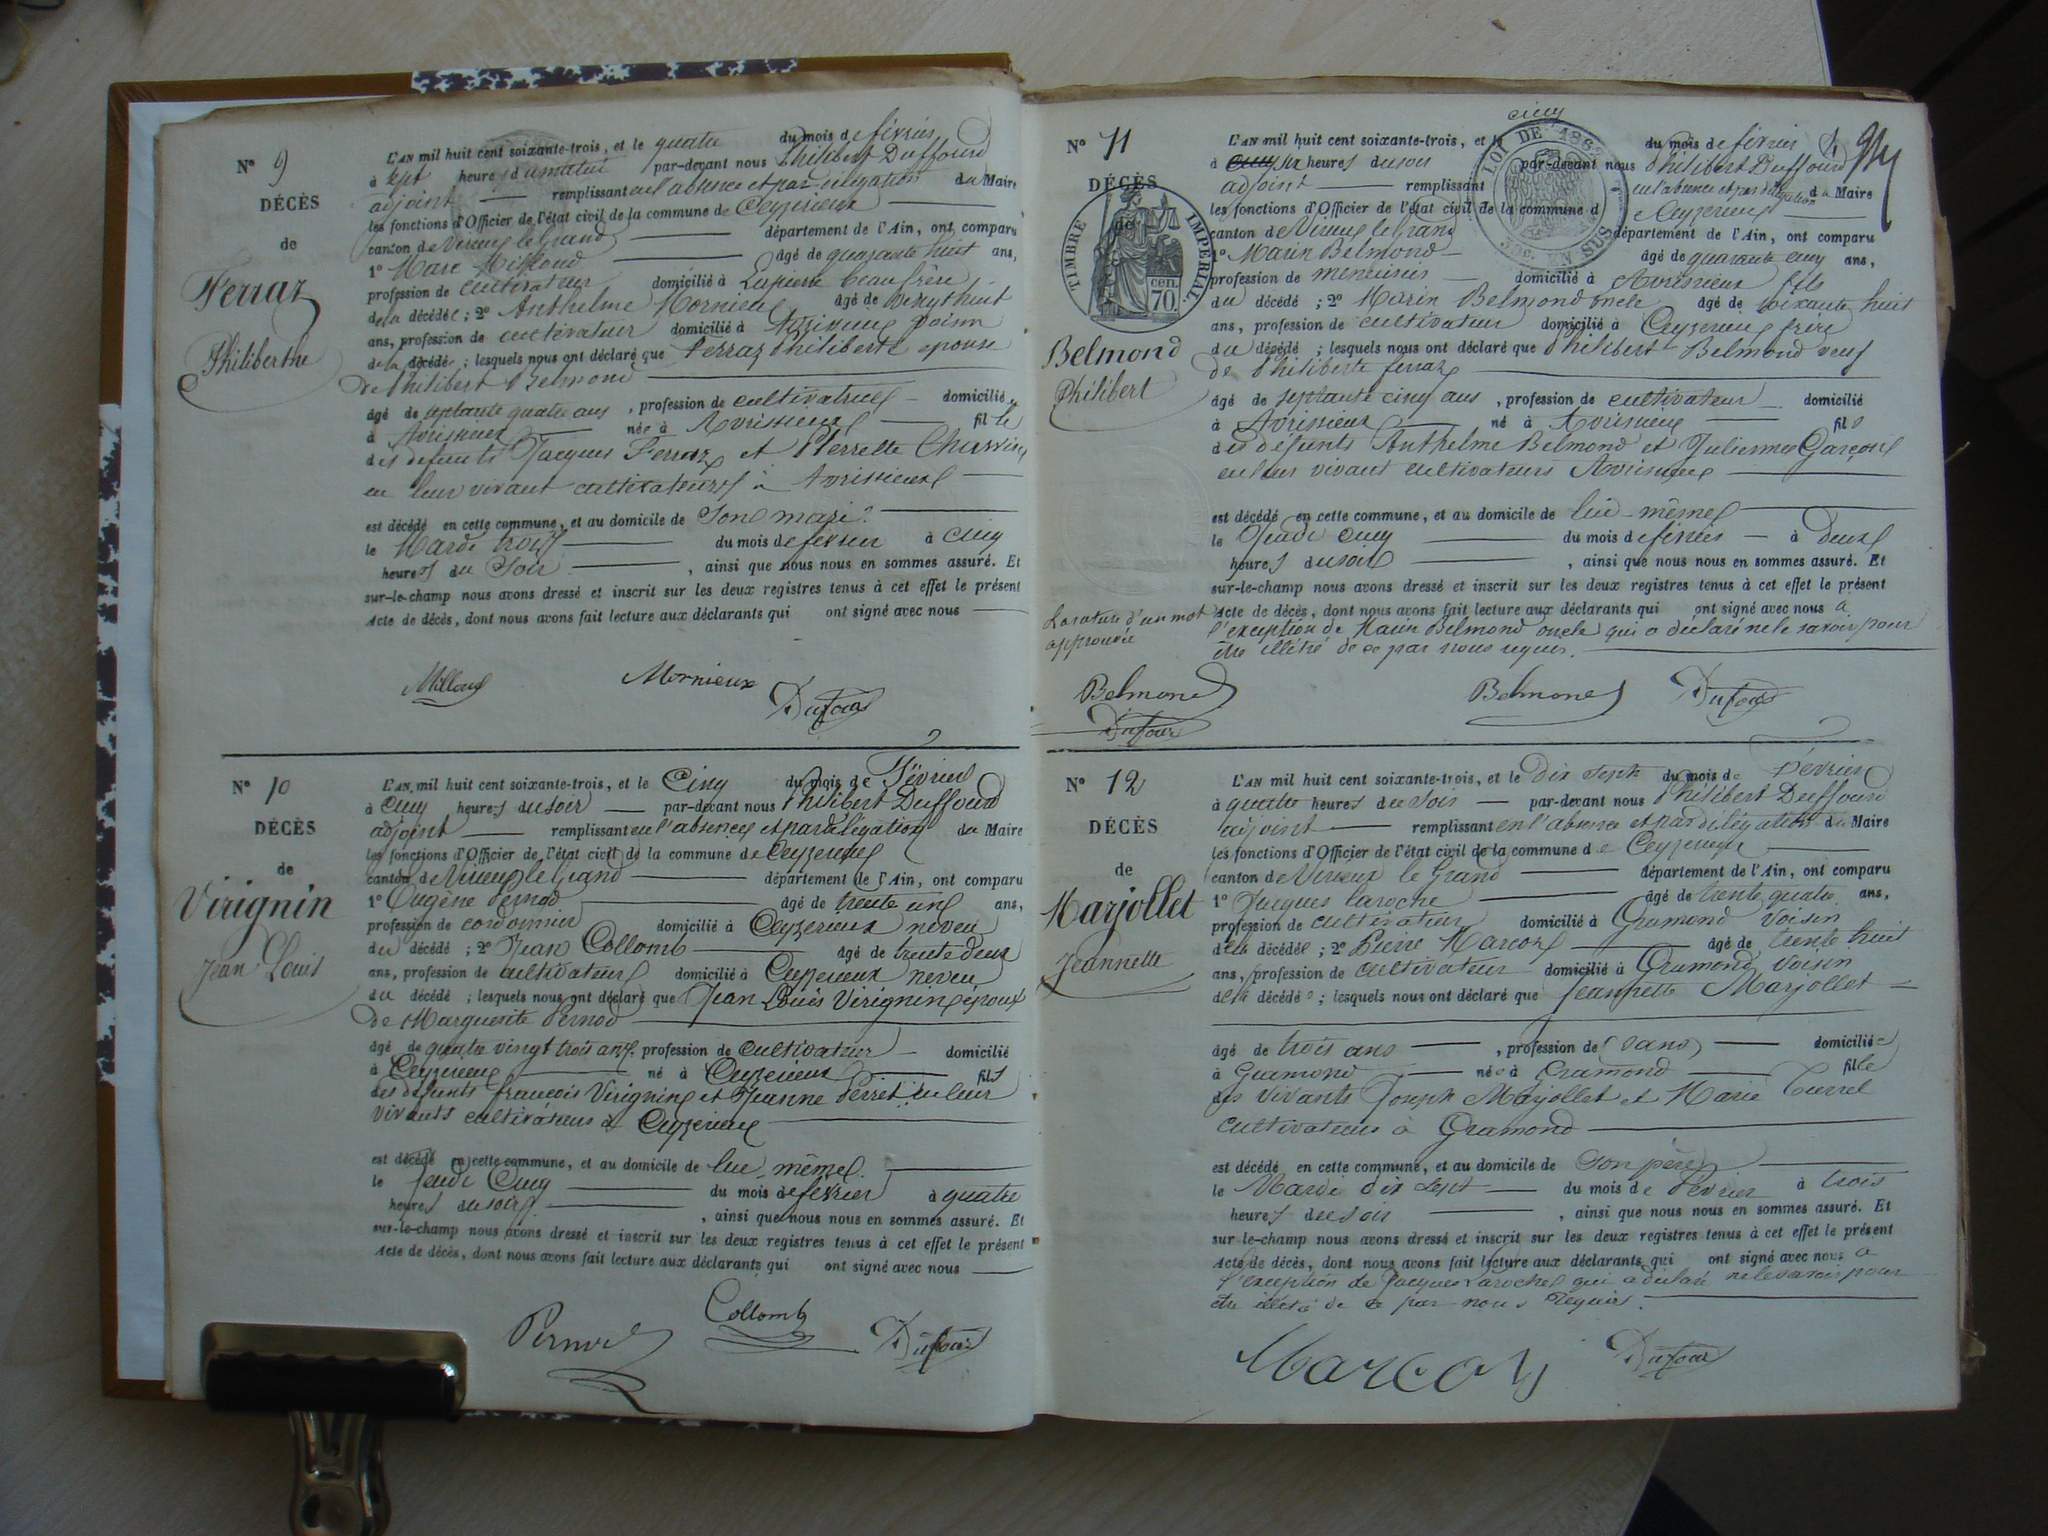 N° 9
DÉCÈS
de
Ferraz
Philiberthe
L'AN mil huit cent soixante-trois, et le quatre du mois de février
à sept heures du matin par-devant nous Philibert Duffourd
adjoint remplissant en l'absence et par délégation du Maire
les fonctions d'Officier de l'état civil de la commune de Ceyzerieux
canton de Virieux le Grand département de l'Ain, ont comparu
1° Marc Milloud âgé de quarante huit ans,
profession de cultivateur domicilié à Lapierre beau frère
de la décédée ; 2° Anthelme Mornieux âgé de vingt huit
ans, profession de cultivateur domicilié à Avrissieux voisin
de la décédée ; lesquels nous ont déclaré que Ferraz Philiberte epouse
de Philibert Belmond
âgé de septante quatre ans , profession de cultivatrice domiciliée
à Avrissieux née à Avrissieux fille
des defunts Jacques Ferraz et Pierrette Charvin
en leur vivant cultivateurs à Avrissieux
est décédé en cette commune, et au domicile de Son mari
le Mardi trois du mois de février à cinq
heures du Soir , ainsi que nous nous en sommes assuré. Et
sur-le-champ nous avons dressé et inscrit sur les deux registres tenus à cet effet le présent
Acte de décès, dont nous avons fait lecture aux déclarants qui ont signé avec nous
Milloud Mornieux Dufour
N° 10
DÉCÈS
de
Virignin
Jean Louis
L'AN mil huit cent soixante-trois, et le Cinq du mois de Février
à cinq heures du soir par-devant nous Philibert Duffourd
adjoint remplissant en l'absence et par délégation du Maire
les fonctions d'Officier de l'état civil de la commune de Ceyzerieux
canton de Virieux le Grand département de l'Ain, ont comparu
1° Eugène Pernod âgé de trente un ans,
profession de cordonnier domicilié à Ceyzerieux neveu
du décédé ; 2° Jean Collomb âgé de trente deux
ans, profession de cultivateur domicilié à Ceyzerieux neveu
du décédé ; lesquels nous ont déclaré que Jean Louis Virignin époux
de Marguerite Pernod
âgé de quatre vingt trois ans, profession de cultivateur domicilié
à Ceyzerieux né à Ceyzerieux fils
des défunts francois Virignin et Jeanne Perret en leur
vivants cultivateurs à Ceyzerieux
est décédé en cette commune, et au domicile de lui même
le Jeudi Cinq du mois de février à quatre
heures du soir , ainsi que nous nous en sommes assuré. Et
sur-le-champ nous avons dressé et inscrit sur les deux registres tenus à cet effet le présent
Acte de décès, dont nous avons fait lecture aux déclarants qui ont signé avec nous
Pernod Collomb Dufour
N° 11
DÉCÈS
de
TIMBRE IMPERIAL
70 cen.
LOI DE 1862
EN SUS
Belmond
Philibert
cinq
L'AN mil huit cent soixante-trois, et le du mois de février
à six heures du soir par-devant nous Philibert Duffourd
adjoint remplissant en l'absence et par délégation du Maire
les fonctions d'Officier de l'état civil de la commune de Ceyzerieux
canton de Virieux le Grand département de l'Ain, ont comparu
1° Marin Belmond âgé de quarante cinq ans,
profession de menuisier domicilié à Avrissieux fils
du décédé ; 2° Marin Belmond oncle âgé de soixante huit
ans, profession de cultivateur domicilié à Ceyzerieux frère
du décédé ; lesquels nous ont déclaré que Philibert Belmond veuf
de Philiberte ferraz
âgé de septante cinq ans , profession de cultivateur domicilié
à Avrissieux né à Avrissieux fils
des défunts Anthelme Belmond et Julienne Garçon
en leur vivant cultivateurs Avrissieux
est décédé en cette commune, et au domicile de lui même
le Jeudi cinq du mois de février à deux
heures du soir , ainsi que nous nous en sommes assuré. Et
sur-le-champ nous avons dressé et inscrit sur les deux registres tenus à cet effet le présent
Acte de décès, dont nous avons fait lecture aux déclarants qui ont signé avec nous a
l'exception de Marin Belmond oncle qui a déclaré ne le savoir pour
être illétré de ce par nous requis.
La rature d'un mot
approuvée
Belmond Belmond Dufour
Dufour
N° 12
DÉCÈS
de
Marjollet
Jeannette
L'AN mil huit cent soixante-trois, et le Dix Sept du mois de Février
à quatre heures du Soir par-devant nous Philibert Duffourd
adjoint remplissant en l'absence et par délégation du Maire
les fonctions d'Officier de l'état civil de la commune de Ceyzerieux
canton de Virieux le Grand département de l'Ain, ont comparu
1° Jacques Laroche âgé de trente quatre ans,
profession de cultivateur domicilié à Gramond voisin
de la décédée ; 2° Pierre Marcon âgé de trente huit
ans, profession de cultivateur domicilié à Gramond voisin
de la décédée ; lesquels nous ont déclaré que Jeannette Marjollet
âgé de trois ans , profession de (sans) domiciliée
à Gramond née à Gramond fille
des vivants Joseph Marjollet et Marie Turrel
cultivateurs à Gramond
est décédé en cette commune, et au domicile de Son père
le Mardi dix Sept du mois de Février à trois
heures du soir , ainsi que nous nous en sommes assuré. Et
sur-le-champ nous avons dressé et inscrit sur les deux registres tenus à cet effet le présent
Acte de décès, dont nous avons fait lecture aux déclarants qui ont signé avec nous a
l'exception de Jacques Laroche qui a déclaré ne le savoir pour
être illétré de ce par nous requis.
Marcon Dufour